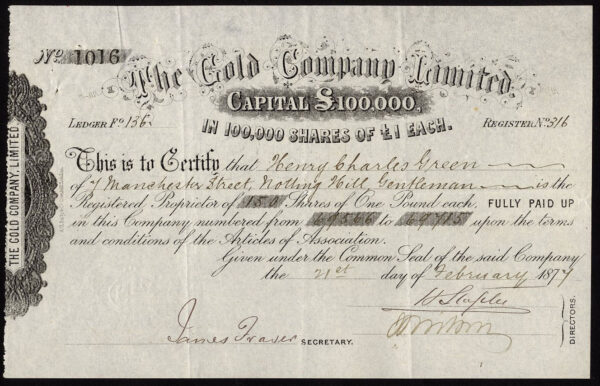 No 1016
The Gold Company Limited.
CAPITAL £100,000.
IN 100,000 SHARES OF £1 EACH.
LEDGER Fo 136. REGISTER No 316
This is to Certify that Henry Charles Green
of 7 Manchester Street, Notting Hill Gentleman is the
Registered Proprietor of 150 Shares of One Pound each FULLY PAID UP
in this Company numbered from 69566 to 69715 upon the terms
and conditions of the Articles of Association.
Given under the Common Seal of the said Company
the 21st day of February 187
James Fraser SECRETARY.
DIRECTORS.
THE GOLD COMPANY, LIMITED.